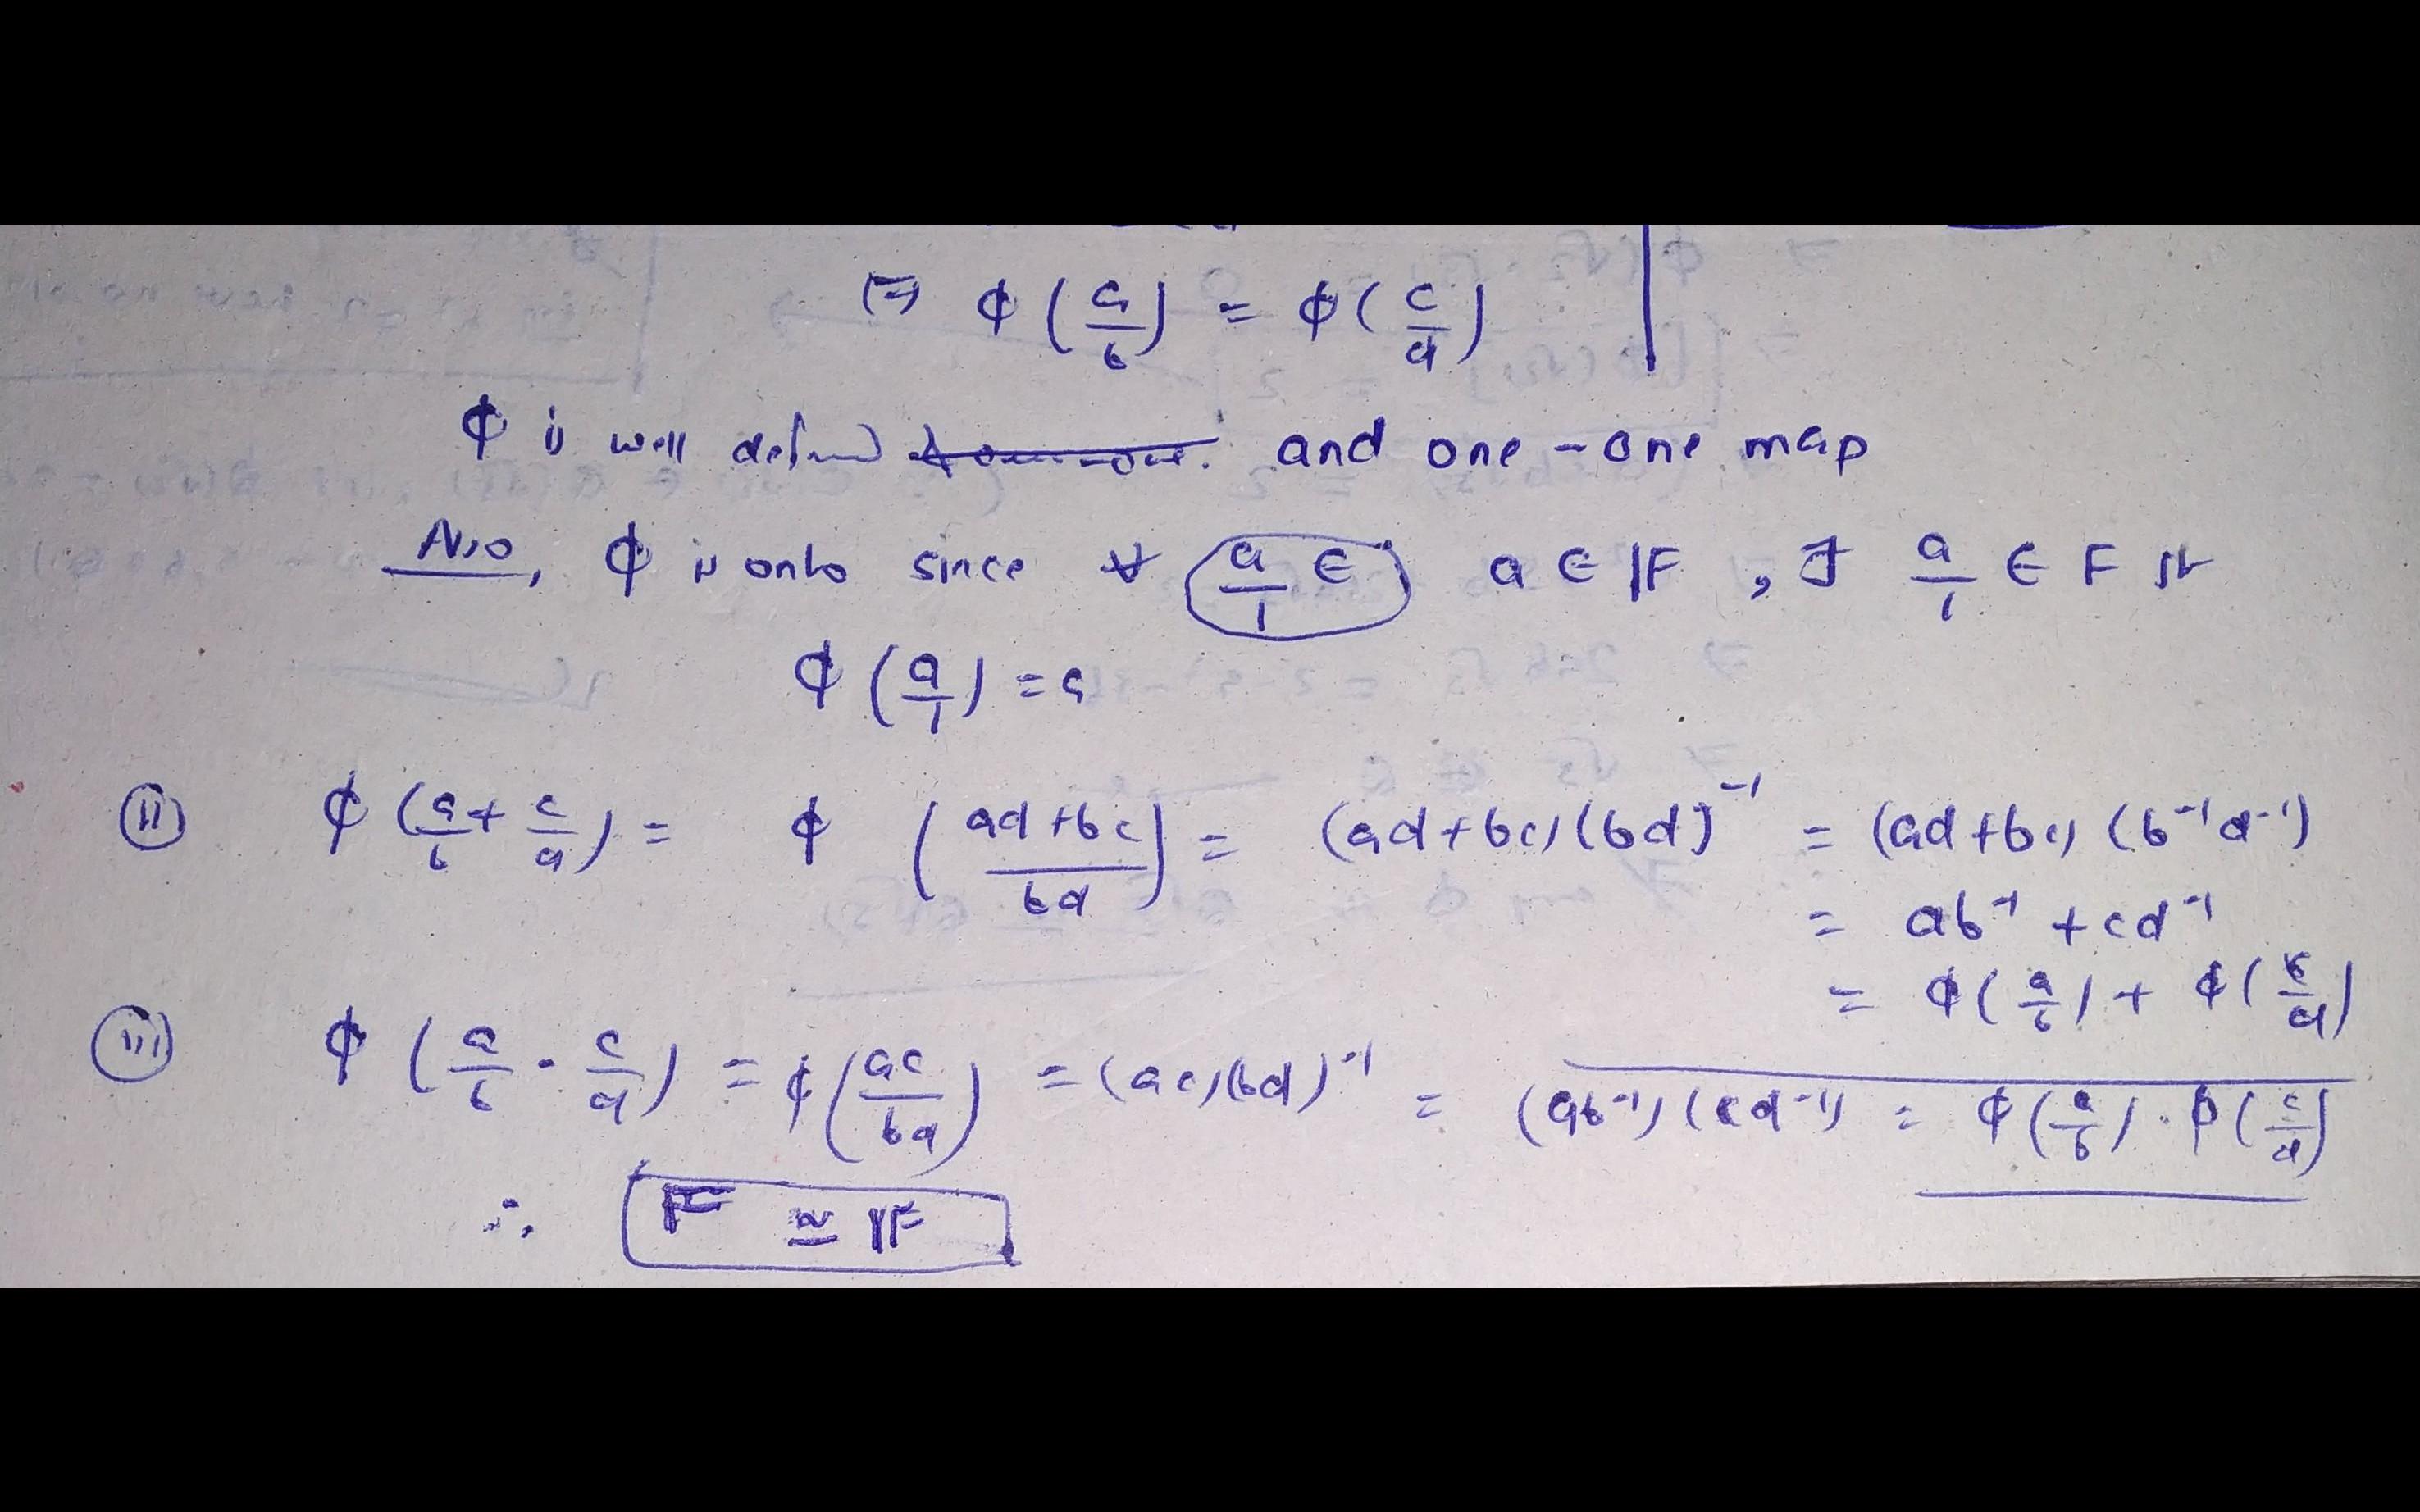 ⇔ ϕ(a/b) = ϕ(c/d)
ϕ is well defined and one-one map
Also, ϕ is onto since ∀ a/1 ∈ a ∈ 𝔽, ∃ a/1 ∈ F st
ϕ(a/1) = a
(ii) ϕ(a/b + c/d) = ϕ((ad+bc)/bd) = (ad+bc)(bd)⁻¹ = (ad+bc)(b⁻¹d⁻¹)
= ab⁻¹ + cd⁻¹
= ϕ(a/b) + ϕ(c/d)
(iii) ϕ(a/b · c/d) = ϕ(ac/bd) = (ac)(bd)⁻¹ = (ab⁻¹)(cd⁻¹) = ϕ(a/b) · ϕ(c/d)
∴ F ≃ 𝔽